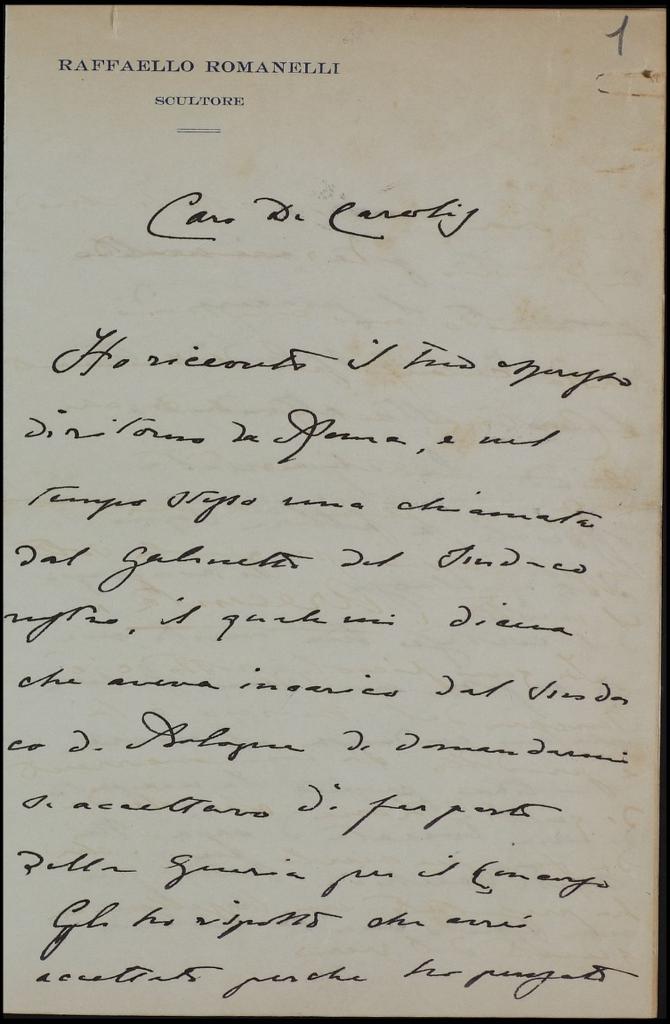 1
RAFFAELLO ROMANELLI
SCULTORE
Caro De Carolis
Ho ricevuto il tuo espresso
di ritorno da Roma, e nel
tempo stesso una chiamata
dal Gabinetto del Sindaco
nostro, il quale mi diceva
che aveva incarico dal Sinda
co di Bologna di domandarmi
se accettavo di far parte
della Giuria per il Concorso
Gli ho risposto che avrei
accettato perche ho pensato